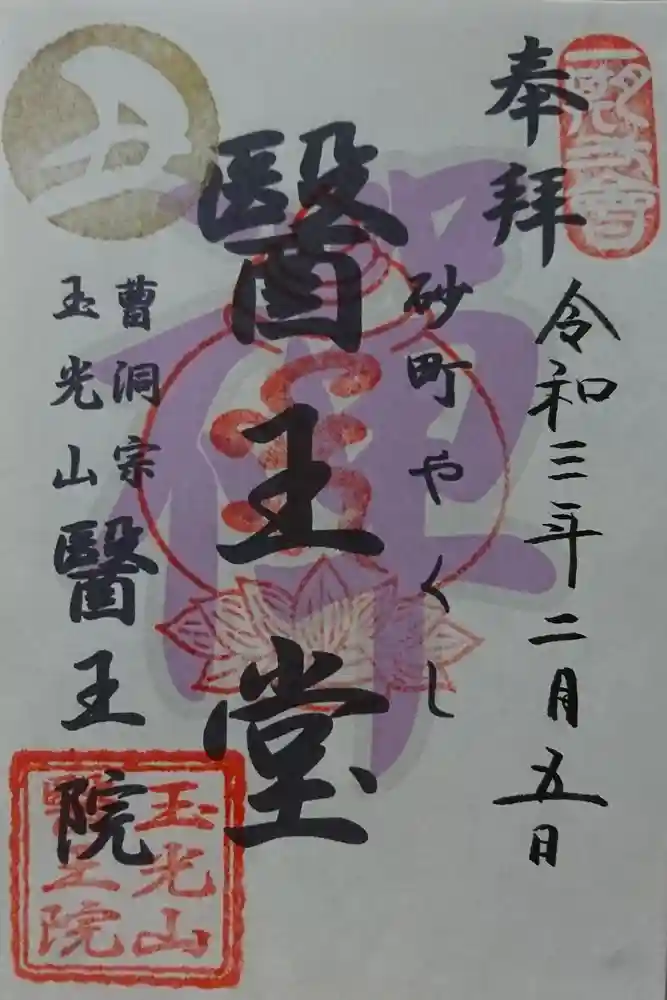 奉拝
令和三年二月五日
砂町やくし
醫王堂
丑
曹洞宗
玉光山
醫王院
玉光山
醫王院